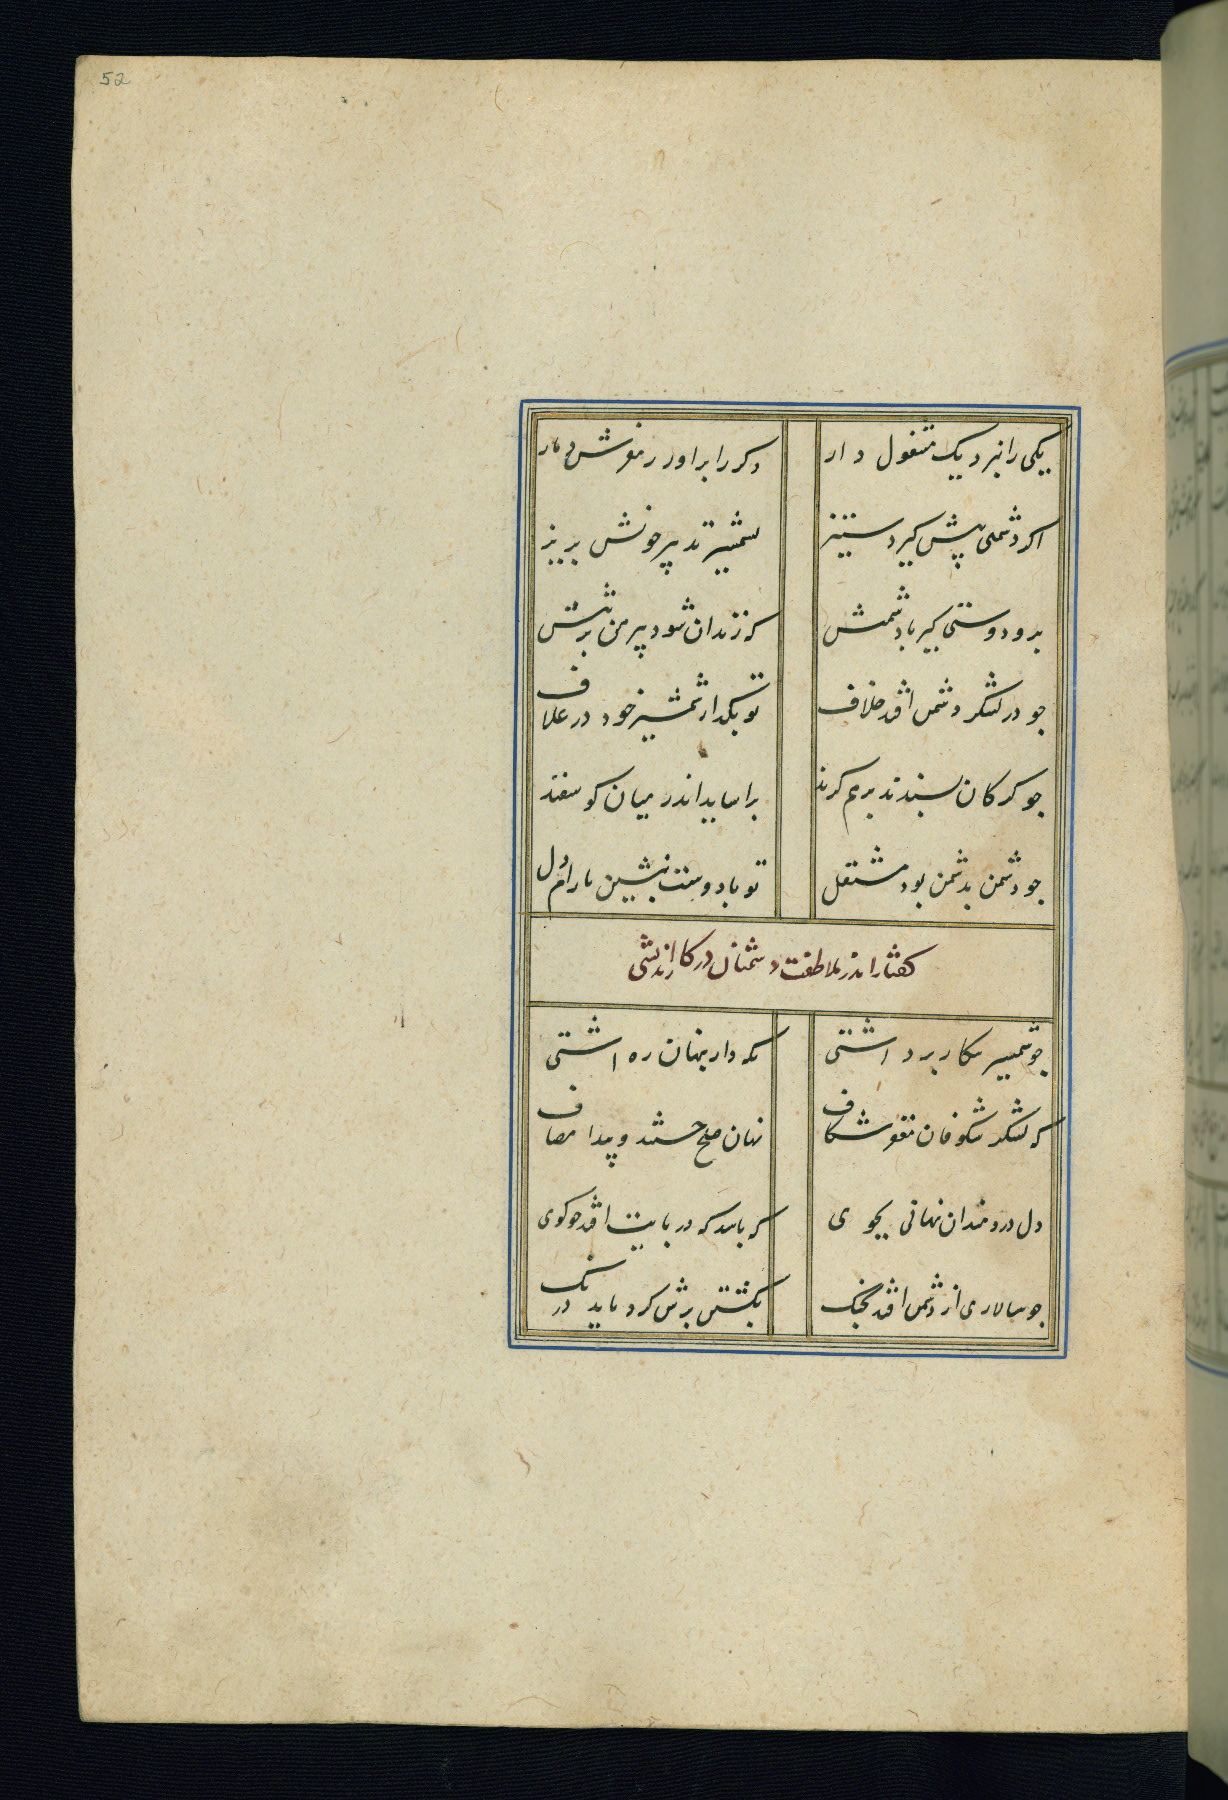 52
یکی را بنیرد یک مشغول دار
دکر را براور ز مغزش دمار
اکر دشمنی پیش کیرد ستیز
بشمشیر تدبیر خونش بریز
برو دوستی کیر با دشمنش
که زندان شود پیرهن بر تنش
جو در لشکر دشمن افتد خلاف
تو بکذار شمشیر خود در غلاف
جو کرکان پسندند برهم کزند
براساید اندر میان کوسفند
جو دشمن بدشمن بود مشتغل
تو با دوست بنشین بارام دل
کفتار اندر ملاطفت دشمنان در کاراندیشی
جو شمشیر بیکار برداشتی
نکه دار پنهان ره اشتی
که لشکر شکوفان مغفر شکاف
نهان صلح جستند و پیدا مصاف
دل دردمندان نهانی بجوی
که باشد که در پایت افتد جو کوی
جو سالاری از دشمن افتد بجنک
بکشتن برش کرد باید درنک